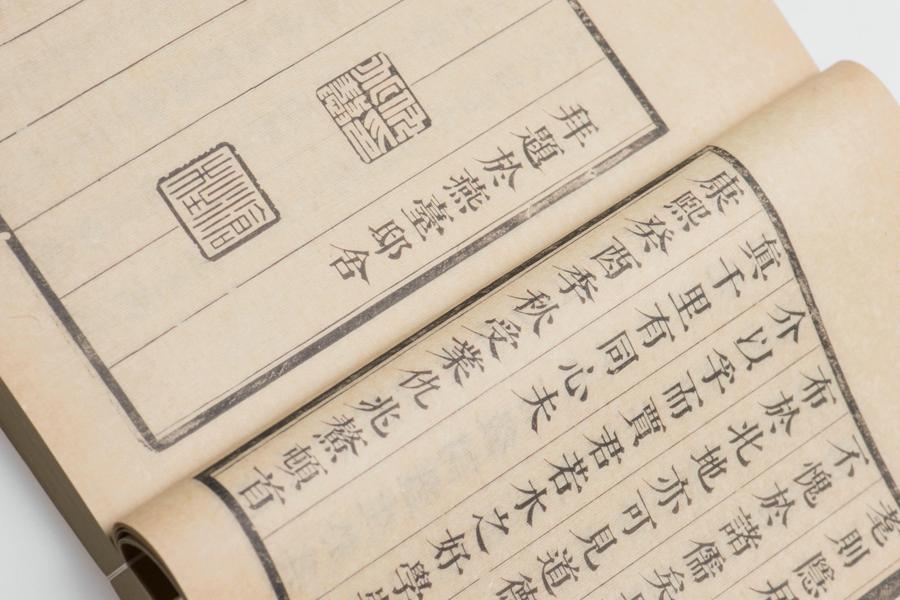 耄則隱
不愧於諸儒矣
布於北地亦可見道德
介以孚而賈君若水之好學
真千里有同心夫
康熙癸酉季秋受業仇兆鰲頓首
拜題於燕臺邸舍